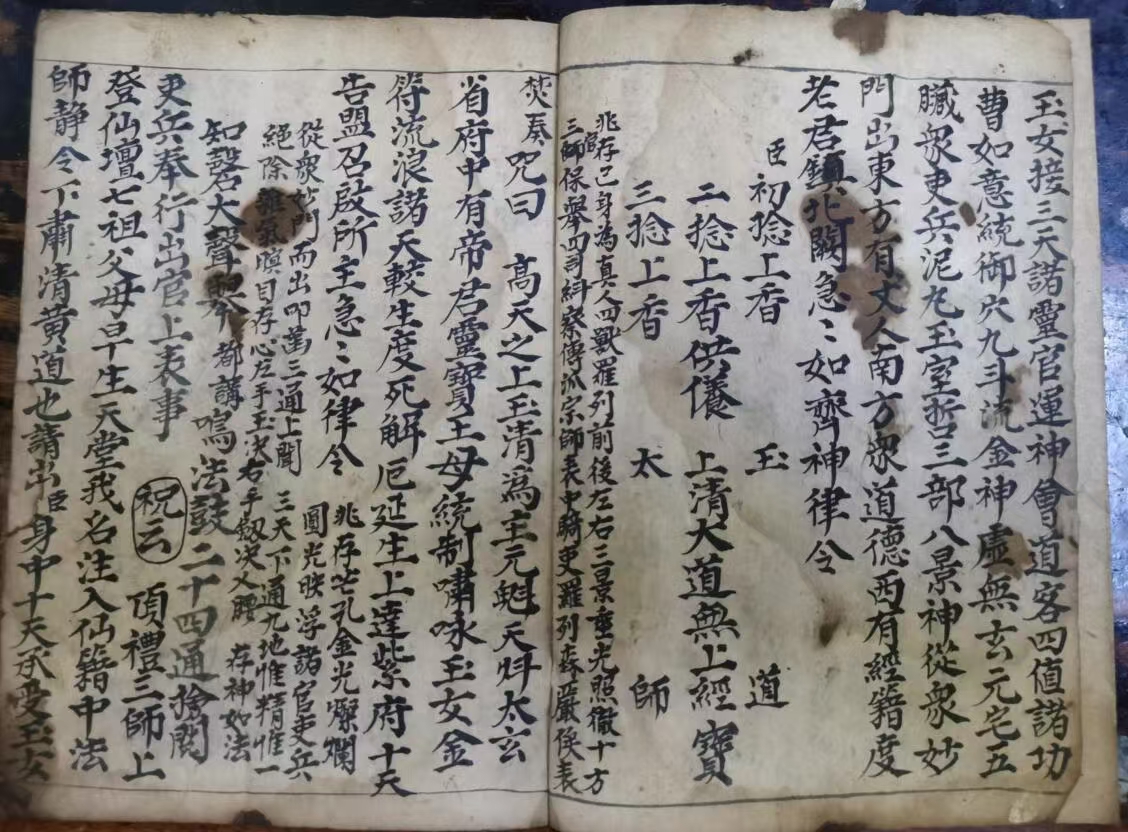 玉女接三天諾靈官運神會道客四值諸功
曹如意統御穴九斗流金神虛無玄元宅五
臟衆吏兵泥丸玉室哲三部八景神從衆妙
門出東方有丈人南方衆道德西有經籍度
老君鎮北闕急〻如齊神律令
臣初捻上香 玉 道
二捻上香供養 上清大道無上經寶
三捻上香 太 師
兆存己身為真人四獸羅列前後左右三景垂光照徹十方
官三師保舉四司糾察傳派宗師表中騎吏羅列森嚴俟表
焚奏咒曰 高天之上玉清為主元魁天斗太玄
省府中有帝君靈寶王母統制嘯咏玉女金
符流浪諸天較生度死解厄延生上達紫府十天
告盟召啟所主急〻如律令 兆存芒孔金光燦爛
圓光映浮諸官吏兵
從衆妙門而出叩齒三通上聞 三天下通九地惟精惟一
絕除雜氣瞑目存心左手玉訣右手劍決义腰 存神如法
知磬大聲 都講鳴法鼓二十四通捨關
吏兵奉行出官上表事 祝云 頂禮三師上
登仙壇七祖父母早生天堂我名注入仙籍中法
師靜令下肅清黃道也請出臣身中十天承受玉女